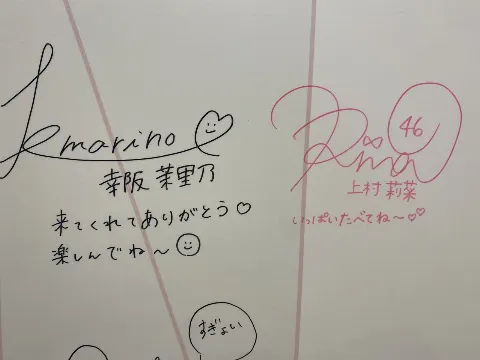 marino
幸阪 茉里乃
来てくれてありがとう♡
楽しんでね〜
46
Rina
上村 莉菜
いっぱいたべてね〜♡♡
すぎょい